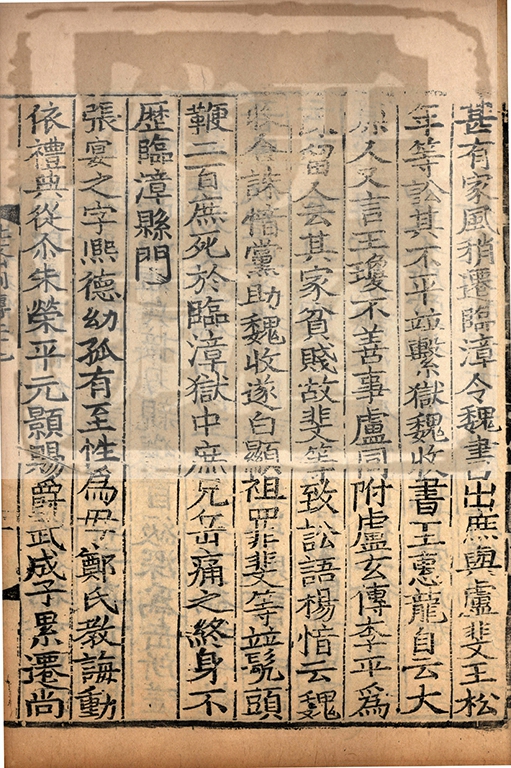 甚有家風稍遷臨漳令魏書出庶與盧斐王松
年等訟其不平並繫獄魏收書王慧龍自云大
人又言王瓊不善事盧同附盧玄傳李平爲
留人云其家貧賤故斐等致訟語楊愔云魏
收合誅愔黨助魏收遂白顯祖罪斐等並髡頭
鞭二百庶死於臨漳獄中庶兄岳痛之終身不
歷臨漳縣門
張宴之字熙德幼孤有至性爲母鄭氏教誨動
依禮典從尒朱榮平元顥賜爵武成子累遷尚